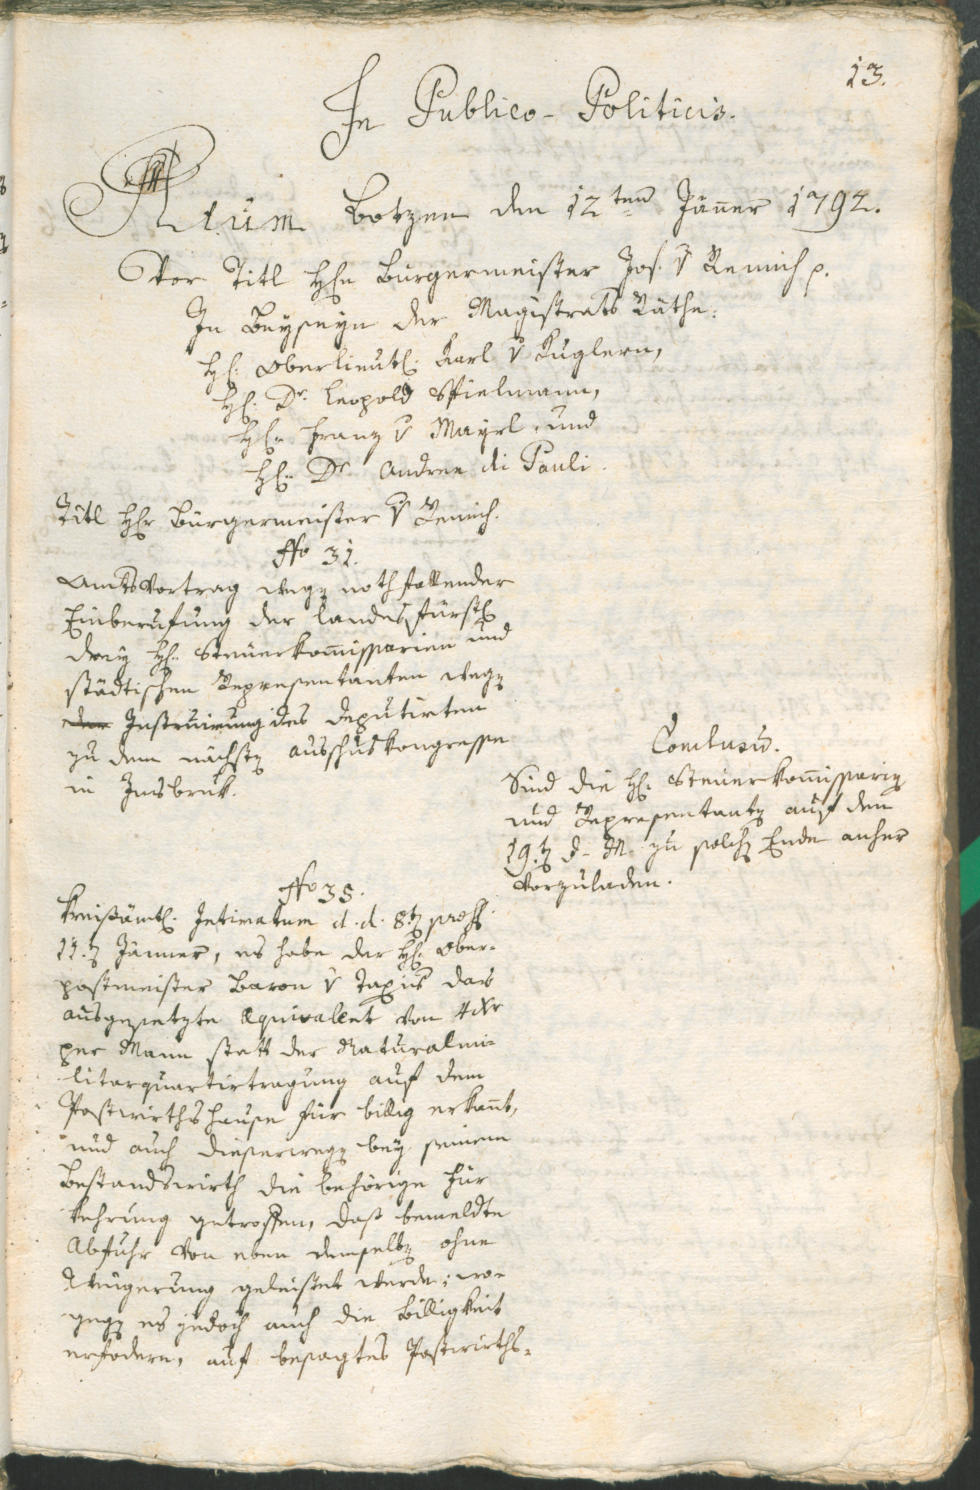 13.
In Publico-Politicis.
Actum Botzen den 12ten Jäner 1792.
Vor Titl Hhn Bürgermeister Jos. v Remich p.
In Beyseyn der Magistrats Räthe.
Hh. Oberlieut. Karl v Kuglern,
Hh. Dr. Leopold Spielmann,
Hh. Franz v Mayrl und
Hh. Dr Andree di Pauli.
Titl Hhr Bürgermeister v Remich.
No 31.
Amtsvortrag weg nothfallender
Einberufung der landesfürstl
drey Hh. Steuerkommissarien und
städtischen Representanten weg
der Instruirung des Deputirten
zu dem nächst Ausschuskongresse
in Insbruk.
Conclusu.
Sind die Hh. Steuerkommissarien
und Representanten auf den
19.t d. M. zu solch Ende anher
vorzuladen.
No 35.
Kreisämtl. Intimatum d. d. 8t
11.t Jänner, es habe der Hh. Ober-
postmeister Baron v Taxis das
ausgesetzte Equivalent von 4 Xr
per Mann statt der Naturalmi-
litarquartirtragung auf dem
Postwirthshause für billig erkant,
und auch dieserweg bey seinem
Bestandswirth die behörige Für
kehrung getroffen, daß bemeldte
Abfuhr von eben demselb ohne
Weigerung geleistet werde; wo-
geg es jedoch auch die Billigkeit
erfodere, auf besagtes Postwirths-